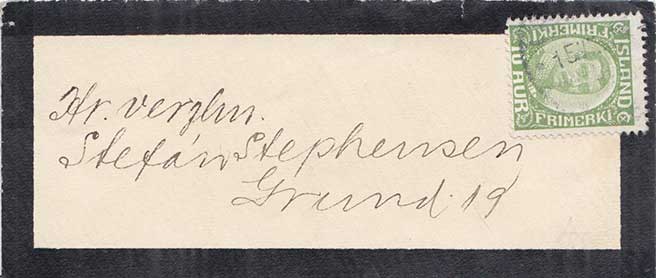 Hr. verzlm.
Stefán Stephensen
Grund. 19
ISLAND
FRIMERKI
10 AUR
FRIMERKI
15